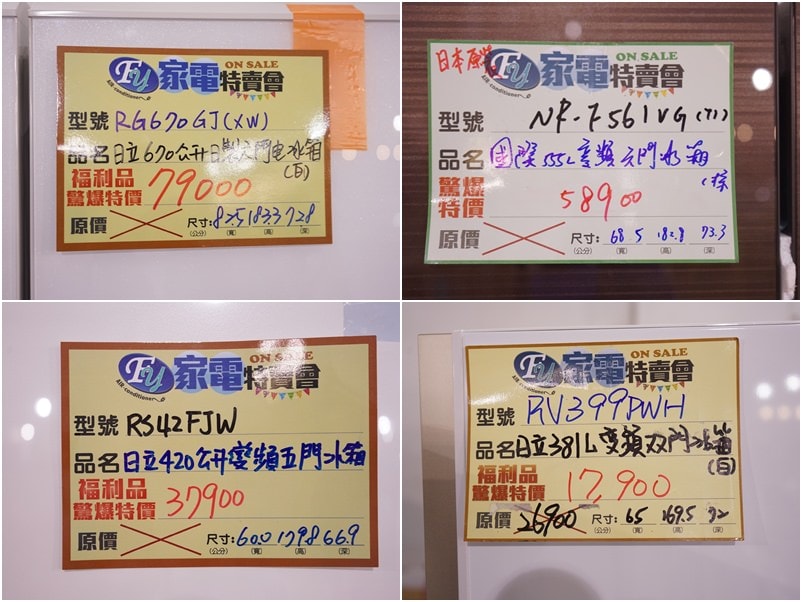 Ey 家電特賣會 ON SALE
AIR conditioner
型號 RG670GJ(XW)
品名 日立670公升日製六門电冰箱(白)
福利品
驚爆特價 79000
原價 尺寸: 82.5 183.3 72.8
(公分) (寬) (高) (深)
日本原裝
Ey 家電特賣會 ON SALE
AIR conditioner
型號 NR-F561VG (T1)
品名 國際555L變頻六門冰箱(棕
驚爆
特價 58900
原價 尺寸: 68.5 182.8 73.3
(公分) (寬) (高) (深)
Ey 家電特賣會 ON SALE
AIR conditioner
型號 RS42FJW
品名 日立420公升變頻五門冰箱
福利品
驚爆特價 37900
原價 尺寸: 60.0 179.8 66.9
(公分) (寬) (高) (深)
Ey 家電特賣會 ON SALE
AIR conditioner
型號 RV399PWH
品名 日立381L變頻双門冰箱(白)
福利品
驚爆特價 17,900
原價 26900 尺寸: 65 169.5 72
(公分) (寬) (高) (深)